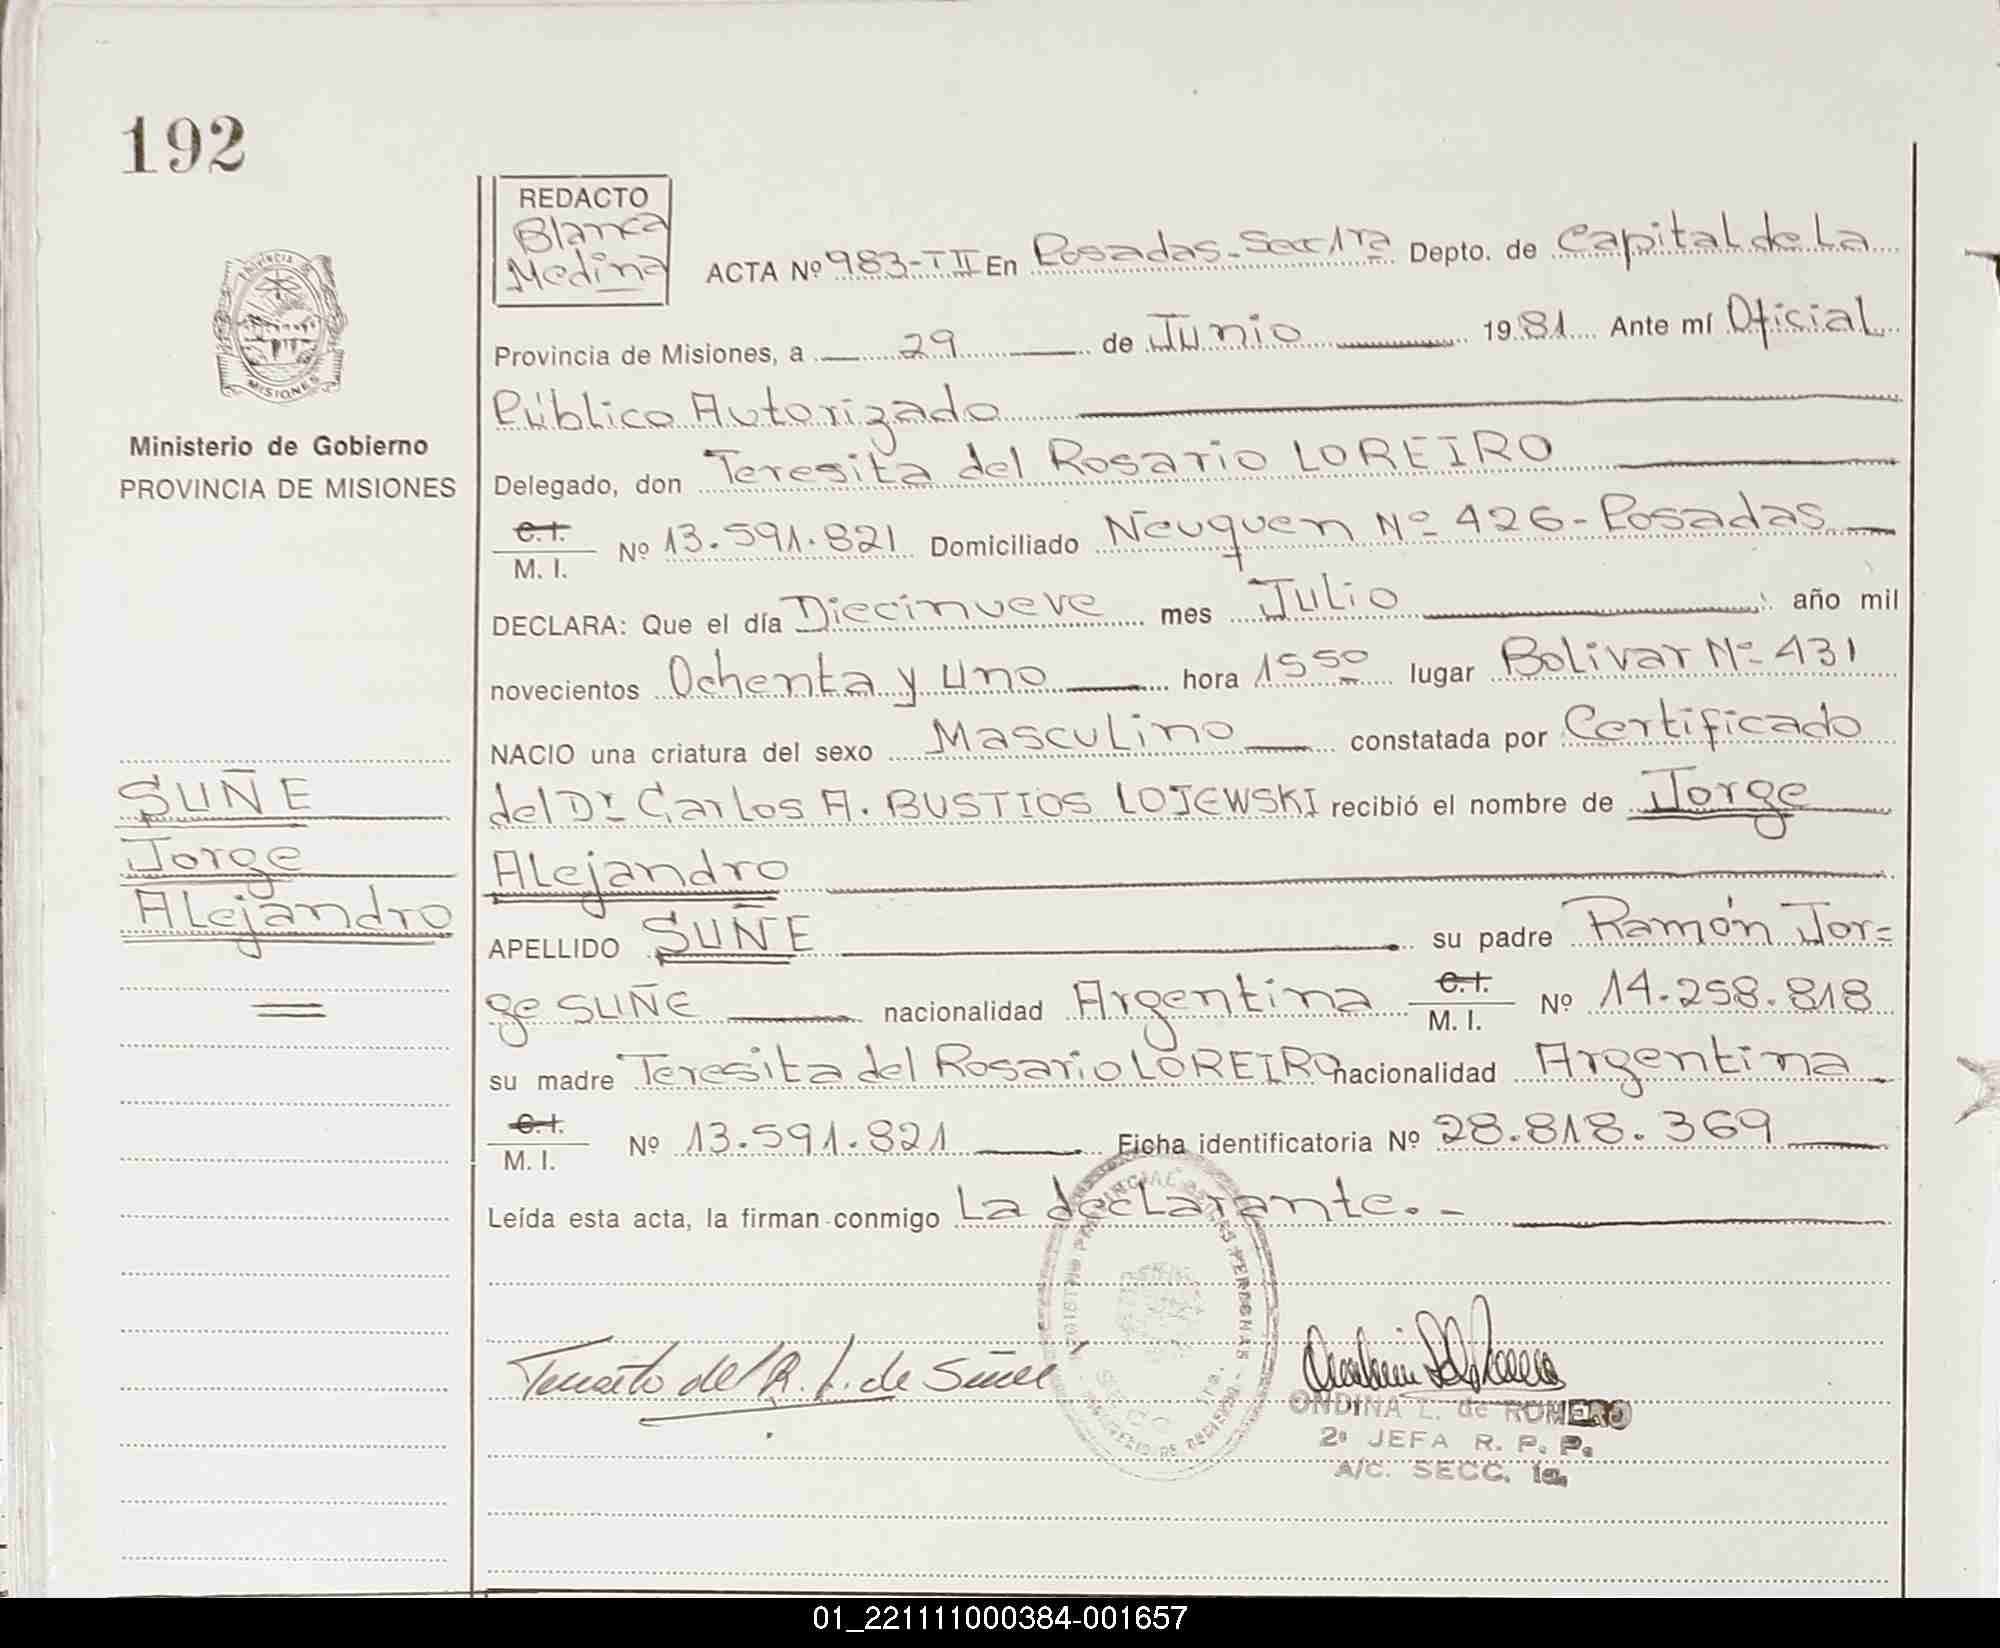 192
REDACTO
Blanca
Medina
ACTA Nº 983-TII En Posadas-Sec 1ra Depto. de Capital de La
Provincia de Misiones, a 29 de Junio 1981 Ante mí Oficial
Público Autorizado
Delegado, don Teresita del Rosario LOREIRO
C.I.
M. I. Nº 13.591.821 Domiciliado Neuquen Nº 426-Posadas
DECLARA: Que el día Diecinueve mes Julio año mil
novecientos Ochenta y uno hora 15 50 lugar Bolivar Nº 431
NACIO una criatura del sexo Masculino constatada por Certificado
del Dr Carlos A. BUSTIOS LOJEWSKI recibió el nombre de Jorge
Alejandro
APELLIDO SUÑE su padre Ramón Jor=
ge SUÑE nacionalidad Argentina C.I. M. I. Nº 14.258.818
su madre Teresita del Rosario LOREIRO nacionalidad Argentina
C.I.
M. I. Nº 13.591.821 Ficha identificatoria Nº 28.818.369
Leída esta acta, la firman conmigo La declarante.-
PROVINCIA
MISIONES
Ministerio de Gobierno
PROVINCIA DE MISIONES
SUÑE
Jorge
Alejandro
del R. L. de Suñe
ONDINA L. de ROMERO
2ª JEFA R. P. P.
A/C. SECC. 1a.
01_221111000384-001657